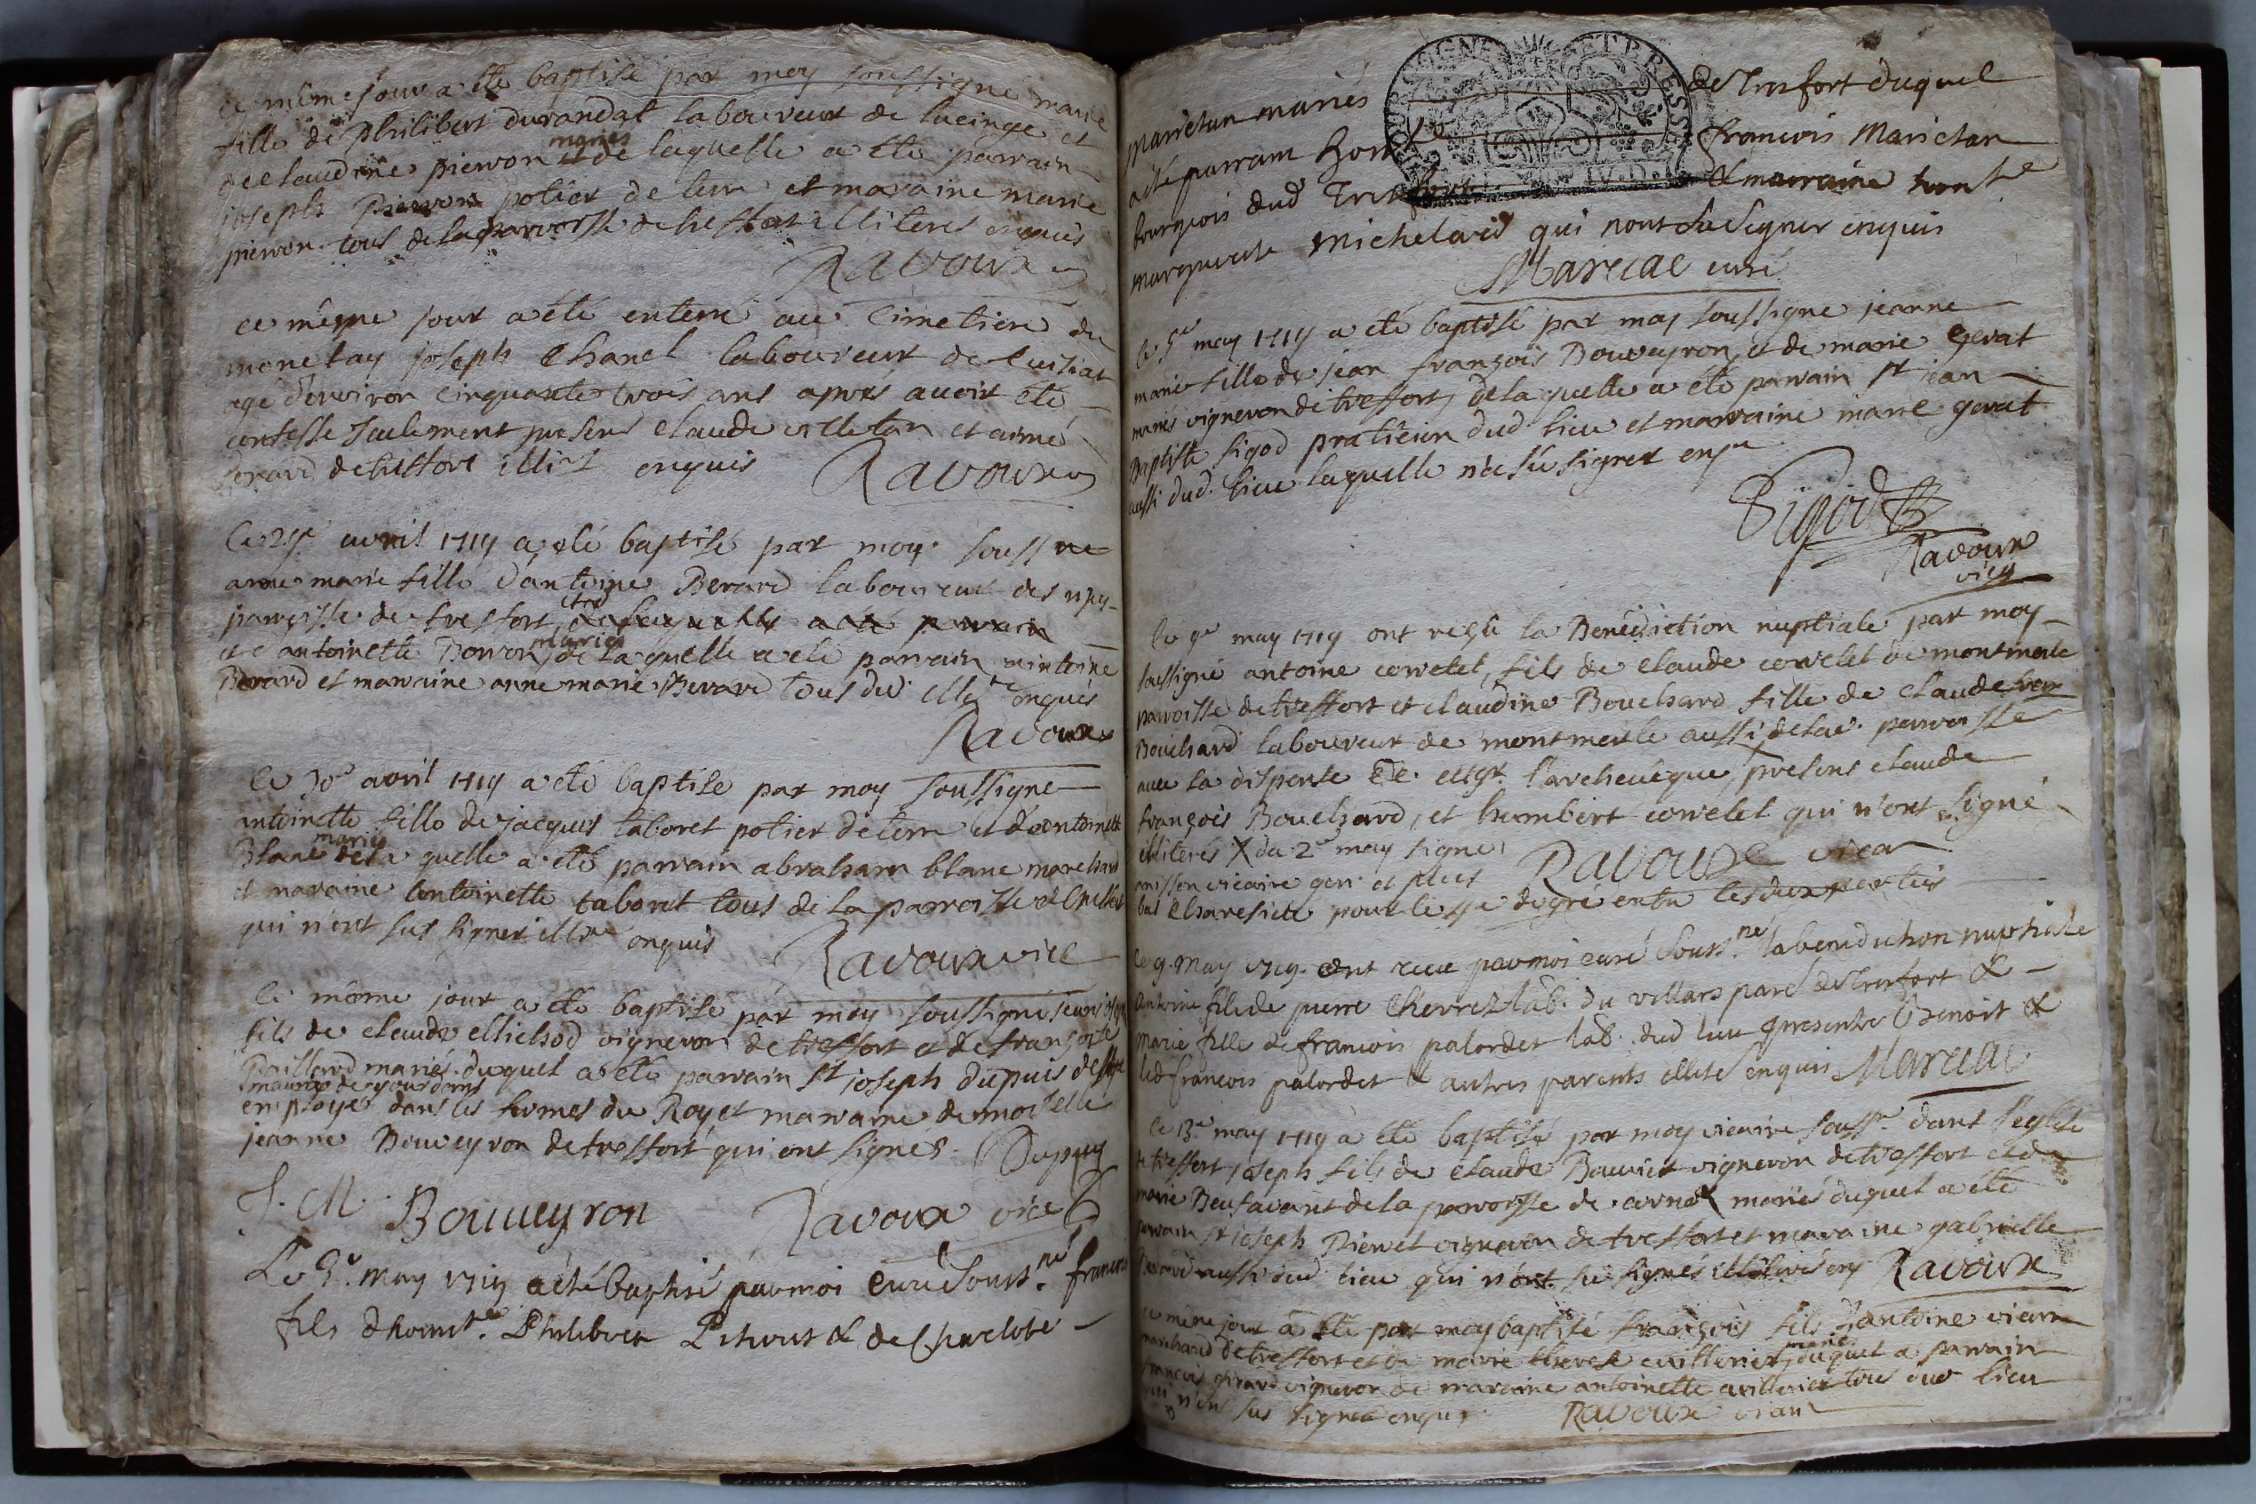 ce même jour a été baptisé par moy soussigne marie
fille de philibert durandat laboureur de lucinge et
de claudine pierron mariés de laquelle a été parrain
joseph pierron potier de terre et maraine marie
pierron tous de la parroisse de treffort illiteres enquis
Ravoux
ce même jour a été enterré au cimetiere de
monetay joseph Chanel laboureur de Cuisiat
agé d'environ cinquante trois ans apres avoir été
confessé seulement presens claude et aimé
de treffort illit enquis Ravoux
Ce avril 1719 a été baptisé par moy souss ne
anne marie fille d'antoine Berard laboureur des
paroisse de treffort de laquelle a été parrain
et antoinette mariés de laquelle a été parrain antoine
Berard et marraine anne marie Berard tous dud. enquis
Ravoux
Ce 30e avril 1719 a été baptisé par moy soussigne
antoinette fille de jacques taboret potier de terre et d'antoinette
Blanc mariés de la quelle a été parrain abraham blanc marchand
et maraine antoinette taboret tous de la parroisse de treffort
qui n'ont sus signer enquis Ravoux vice
Ce même jour a été baptisé par moy soussigné
fils de claude Michod vigneron de treffort et de françoise
Paillard mariés duquel a été parrain Sr joseph dupuis
employé dans les fermes du Roy et marraine demoiselle
jeanne Bouveyron de treffort qui ont signés. Dupuy
J. M. Bouveyron Ravoux vice
Le may 1719 a été baptisé par moi curé Souss.né francois
fils d'honnte. Philibert & de Charlote
Marietan mariés de Treffort duquel
a été parrain francois Marietan
bourgeois dud Treffort & marraine honte
marguerite Michelard qui n'ont su signer enquis
Mareiac curé
Ce 5e may 1719 a été baptisé par moy soussigne jeanne
marie fille de jean françois Bouveyron et de marie gerat
mariés vigneron de treffort, de la quelle a été parrain Sr jean
Baptiste sigod praticien dud. lieu et marraine marie gerat
aussi dud. lieu laquelle n'a sû signer enqs
Sigod
Ravoux
vica
Ce 9e may 1719 ont reçû la Benediction nuptiale par moy
soussigné antoine corvelet, fils de claude corvelet de montmerle
paroisse de treffort et claudine Bouchard fille de claude
Bouchard laboureur de montmerle aussi de lad. parroisse
avec la dispense de l'archevêque, presens claude
françois Bouchard, et humbert corvelet qui n'ont signé
illiteres X du 2e may signé Ravoux vica
vicaire gen. et plus
bas pour le 4e degré entre les deux parties
Le 9. may 1719. ont receu par moi curé Souss.né la benediction nuptiale
antoine fils de pierre Chevrez lab. du villars paroi de Treffort &
marie fille de francois palordet lab. dud lieu presents Benoit &
led francois palordet & autres parents illité enquis Mareiac
Ce 13e may 1719 a été baptisé par moy vicaire souss. dans l'eglise
de treffort joseph fils de claude Bouvier vigneron de treffort et de
marie de la parroisse de mariés duquel a été
parrain Sr joseph Pierret vigneron de treffort et maraine gabrielle
aussi dud. lieu qui n'ont su signés illiterés enq Ravoux
ce même jour a été par moy baptisé françois fils d'antoine
marchand de treffort et de marie therese mariés duquel a parrain
francois girard vigneron de maraine antoinette tous dud lieu
qui n'ont sus signer enquis. Ravoux vicaire